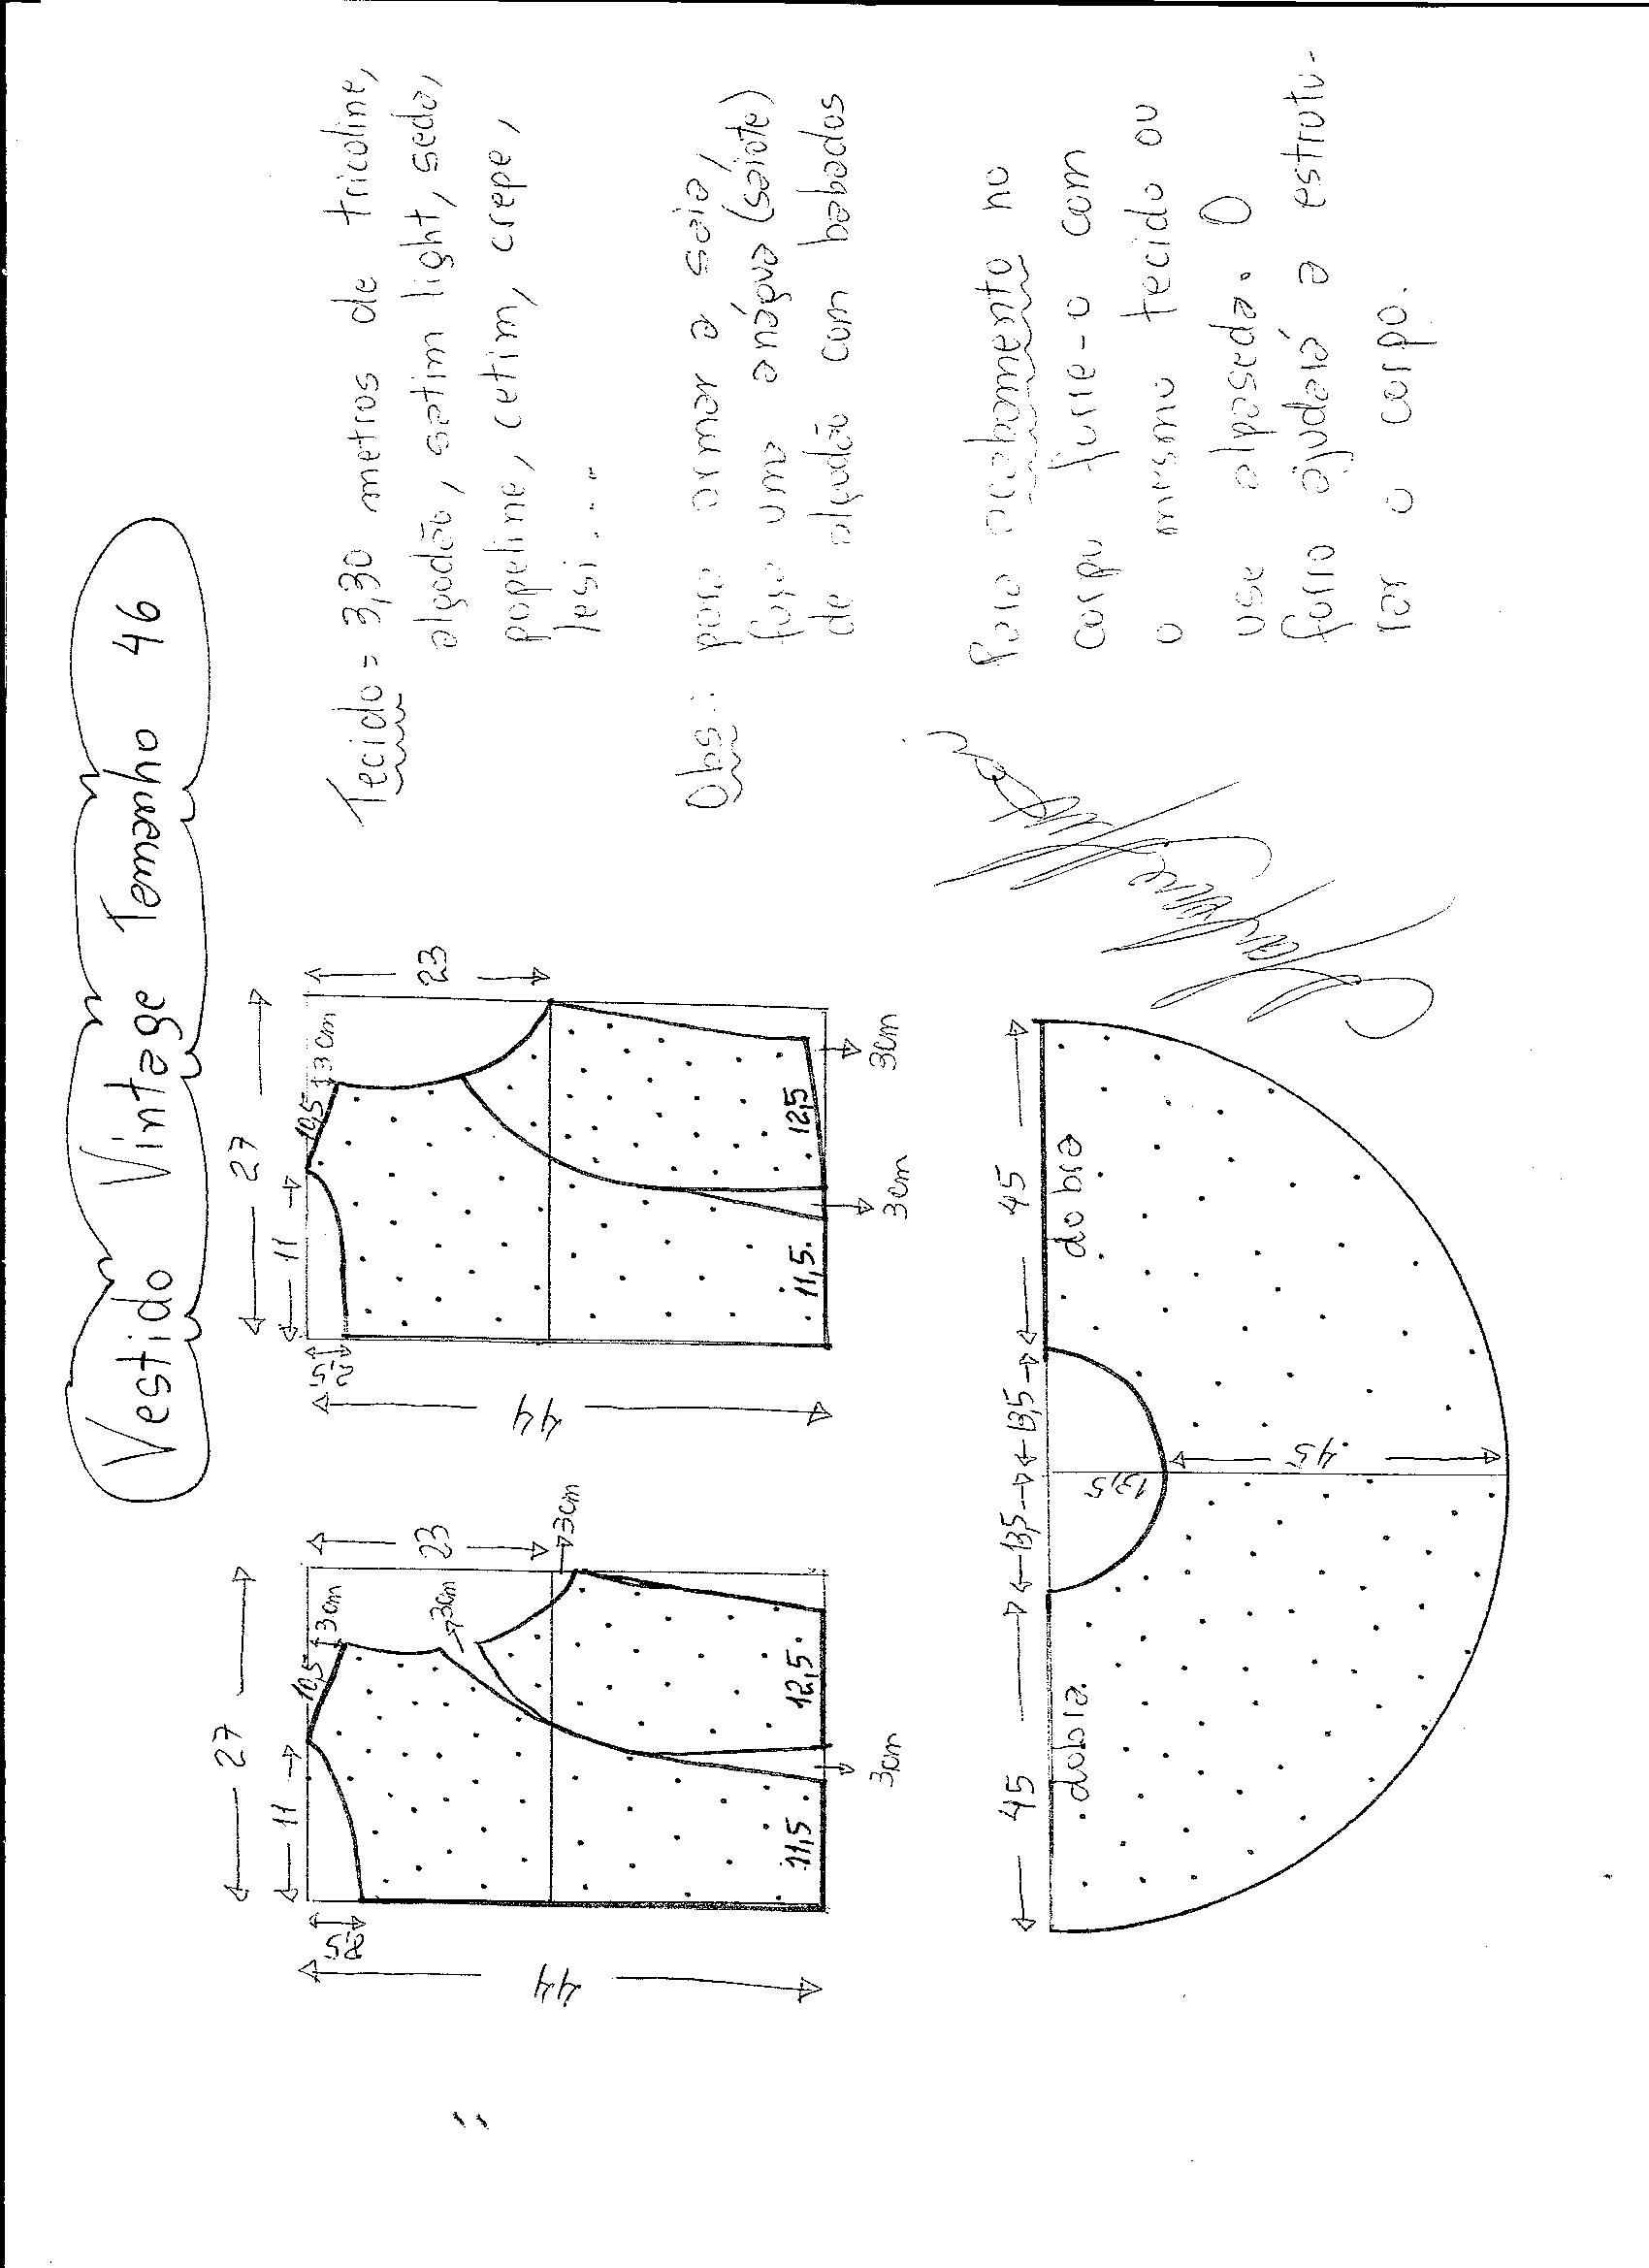 Vestido Vintage Tamanho 46
27
11
10,5
3cm
23
3cm
3cm
8,5
44
11,5
12,5
3cm
27
11
10,5
3cm
23
2,5
44
11,5.
12,5
3cm
3cm
Tecido = 3,30 metros de tricoline,
algodão, satim light, seda,
popeline, cetim, crepe,
lesi....
Obs.: para armar a saia,
faça uma anágua (saiote)
de algodão com babados
Para acabamento no
corpo forre-o com
o mesmo tecido ou
use alpaseda. O
forro ajudará a estrutu-
rar o corpo.
45 13,5 13,5 45
dobra dobra
13,5
45
Marlene Mukai